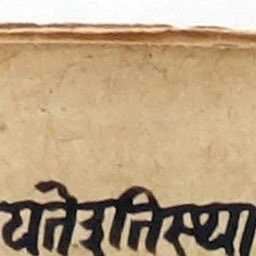 यतेउतिस्था